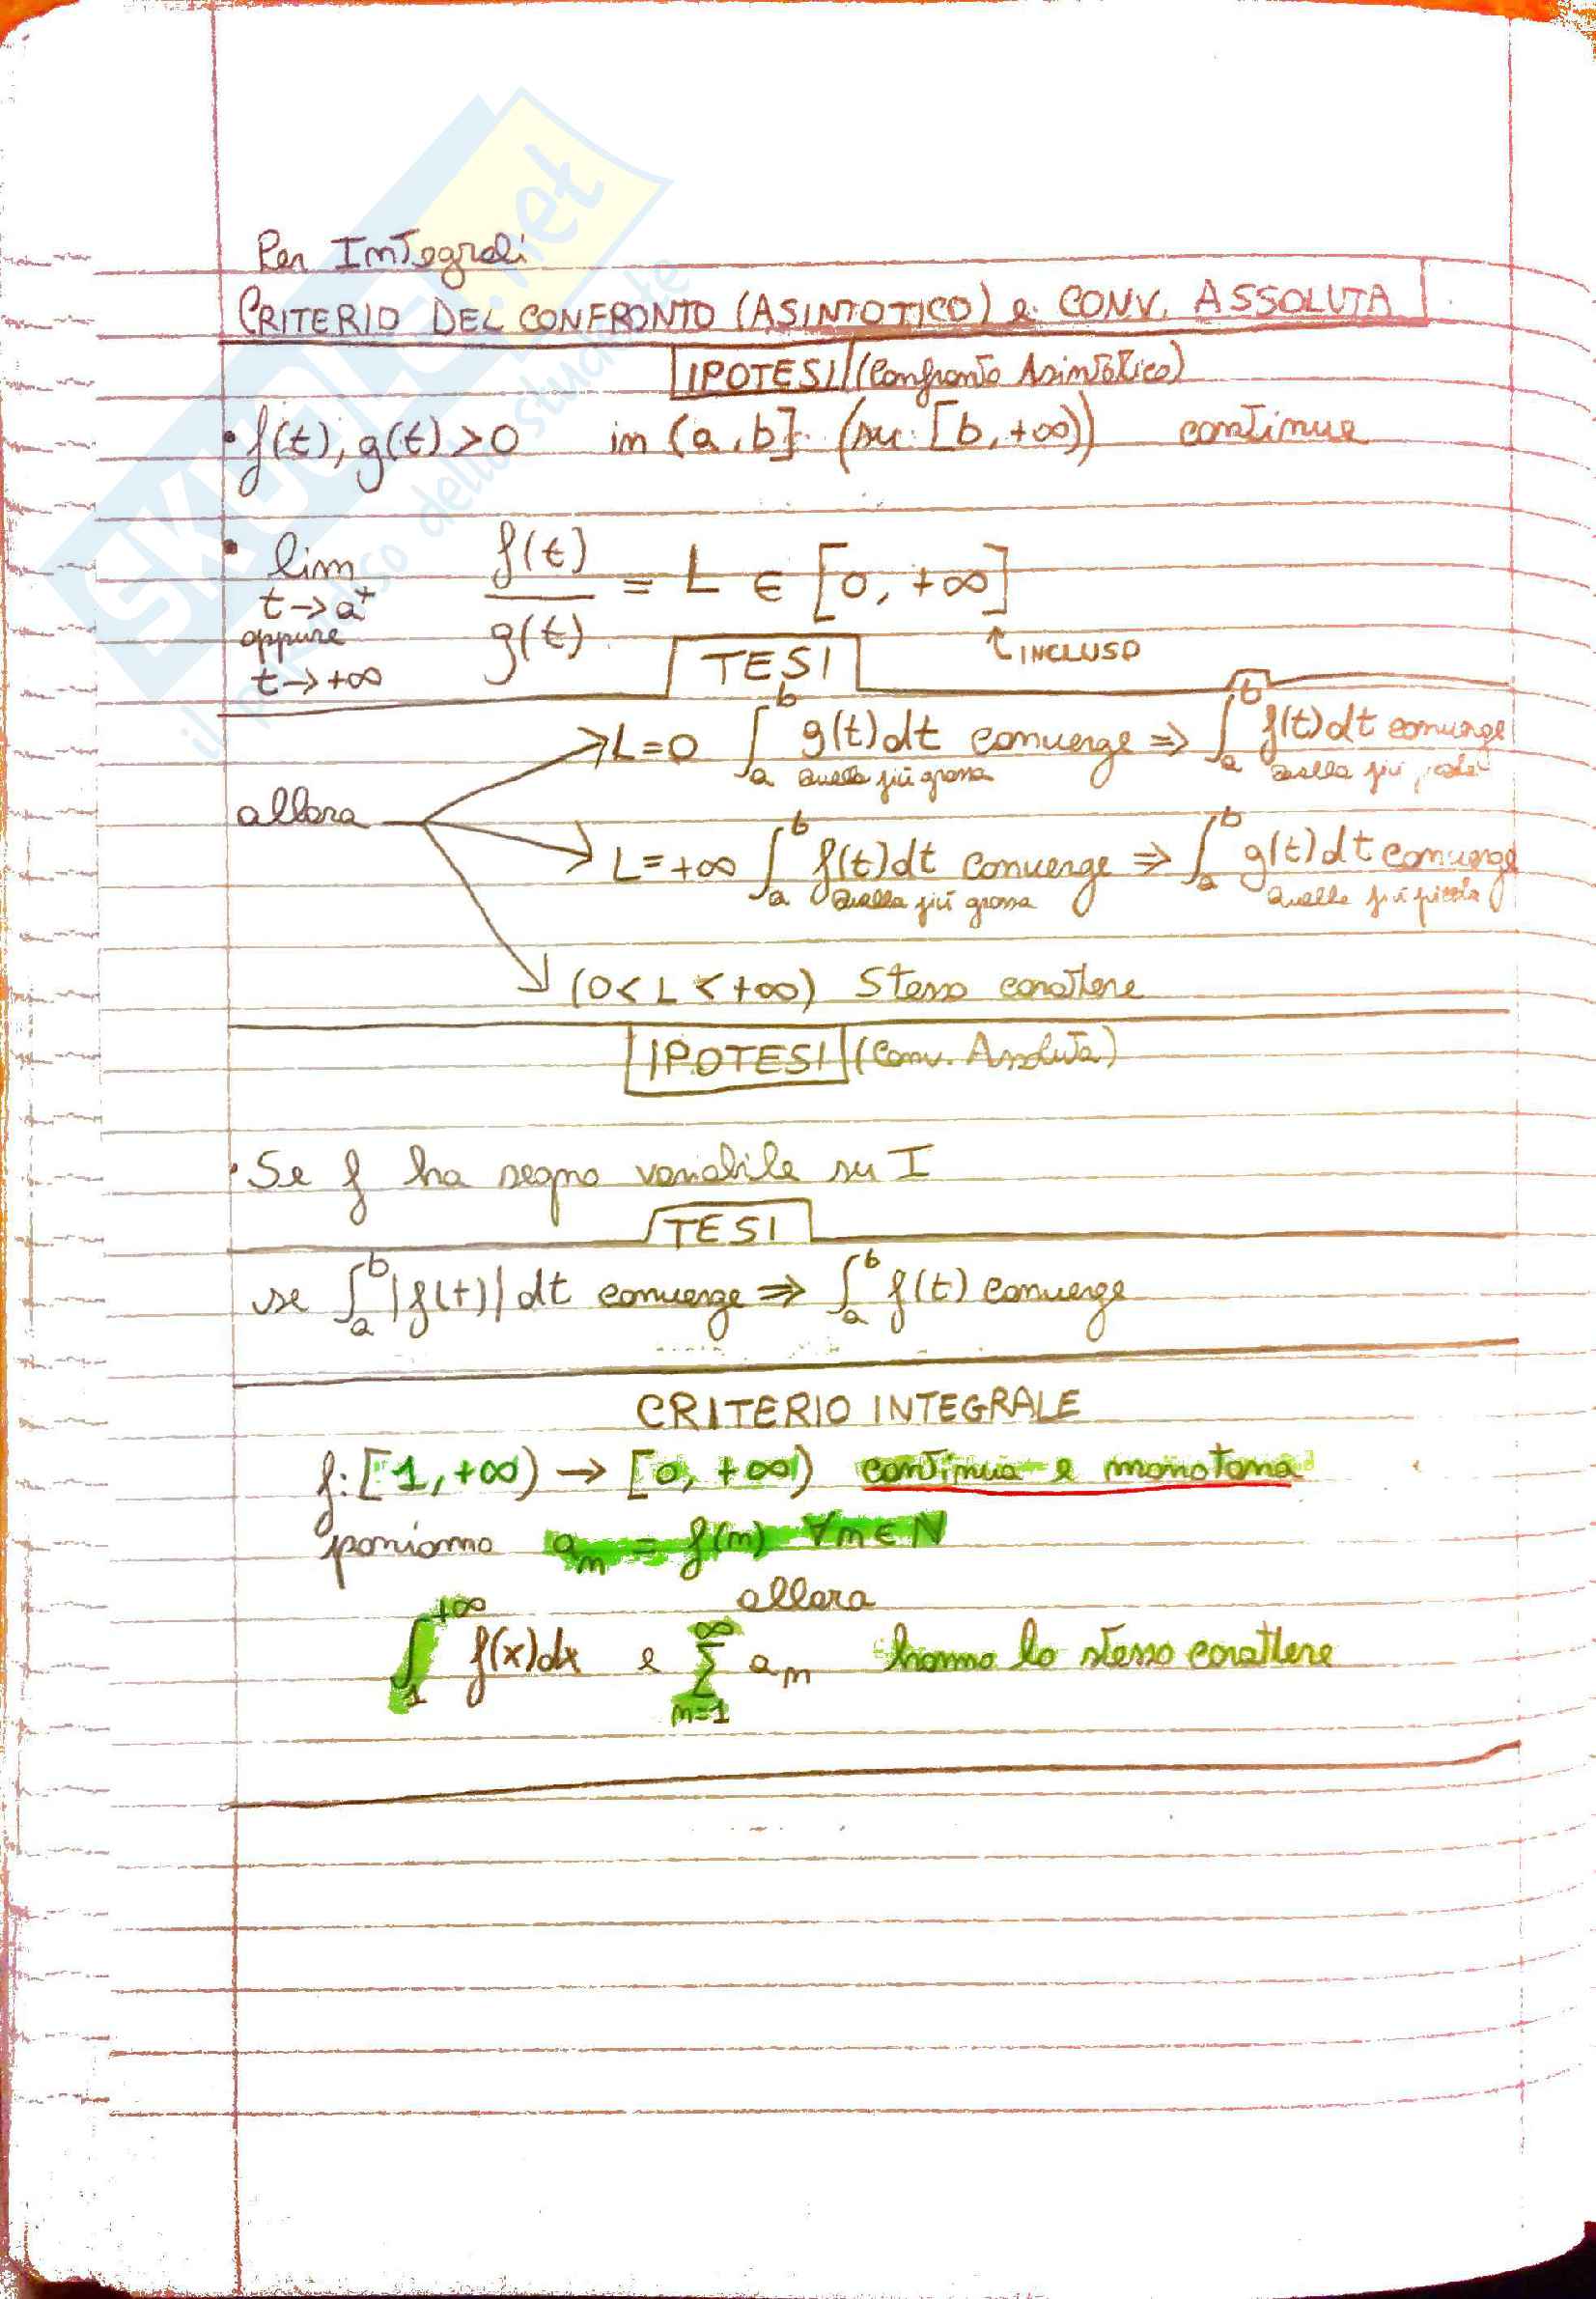 SKUOLA.net
il paradiso dello studente
Per Integrali
CRITERIO DEL CONFRONTO (ASINTOTICO) e CONV. ASSOLUTA
IPOTESI (Confronto Asintotico)
• f(t), g(t) > 0 in (a, b] (su [b, +∞)) continue
• lim f(t)/g(t) = L ∈ [0, +∞]
t→a⁺
oppure
t→+∞
↑ INCLUSO
TESI
L=0 ∫_a^b g(t)dt converge ⇒ ∫_a^b f(t)dt converge
quella più grossa quella più
allora
L=+∞ ∫_a^b f(t)dt converge ⇒ ∫_a^b g(t)dt converge
quella più grossa quella più piccola
(0<L<+∞) Stesso carattere
IPOTESI (Conv. Assoluta)
• Se f ha segno variabile su I
TESI
se ∫_a^b |f(t)| dt converge ⇒ ∫_a^b f(t) converge
CRITERIO INTEGRALE
f: [1, +∞) → [0, +∞) continua e monotona
poniamo a_n = f(n) ∀n∈N
allora
∫_1^{+∞} f(x)dx e ∑_{n=1}^∞ a_n hanno lo stesso carattere